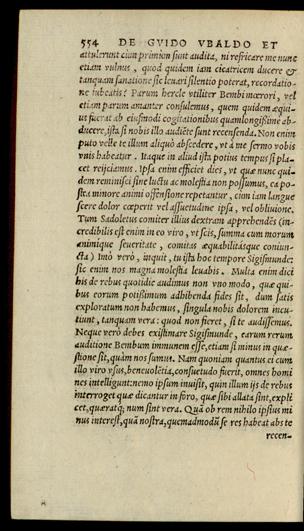 554 DE GVIDO VBALDO ET
attulerunt cùm primùm sunt audita, ni refricare me nunc
etiam vulnus, quod quidem iam cicatricem ducere &
tanquam sanatione sic leuari silentio poterat, recordatio-
ne iubeatis? Parum hercle vtiliter Bembi mœrori, vel
etiam parum amanter consulemus, quem quidem æqui-
us fuerat ab eiusmodi cogitationibus quamlongissimè ab-
ducere, ista si nobis illo audiēte sunt recensenda. Non enim
puto velle te illum aliquò abscedere, vt à me sermo vobis
vnis habeatur. Itaque in aliud ista potius tempus si pla-
cet reijciamus. Ipsa enim efficiet dies, vt quæ nunc qui-
dem reminisci sine luctu ac molestia non possumus, ea po-
stea minore animi offensione repetantur, cùm iam langue
scere dolor cœperit vel assuetudine ipsa, vel obliuione.
Tum Sadoletus comiter illius dextram apprehendēs (in-
credibilis est enim in eo viro, vt scis, summa cum morum
animique seueritate, comitas æquabilitásque coniun-
cta) Imò verò, inquit, tu ista hoc tempore Sigismunde:
sic enim nos magna molestia leuabis. Multa enim dici
his de rebus quotidie audimus non vno modo, quæ qui-
bus eorum potissimum adhibenda fides sit, dum satis
exploratum non habemus, singula nobis dolorem incu-
tiunt, tanquam vera: quod non fieret, si te audissemus.
Neque verò debes existimare Sigismunde, earum rerum
auditione Bembum immunem esse, etiam si minus in quæ-
stione sit, quàm nos sumus. Nam quoniam quantus ei cum
illo viro vsus, beneuolētia, consuetudo fuerit, omnes homi
nes intelligunt: nemo ipsum inuisit, quin illum ijs de rebus
interroget quæ dicantur in foro, quæ sibi allata sint, expli
cet, quæratq; num sint vera. Quã ob rem nihilo ipsius mi
nus interest, quã nostra, quemadmodũ se res habeat abs te
recen-